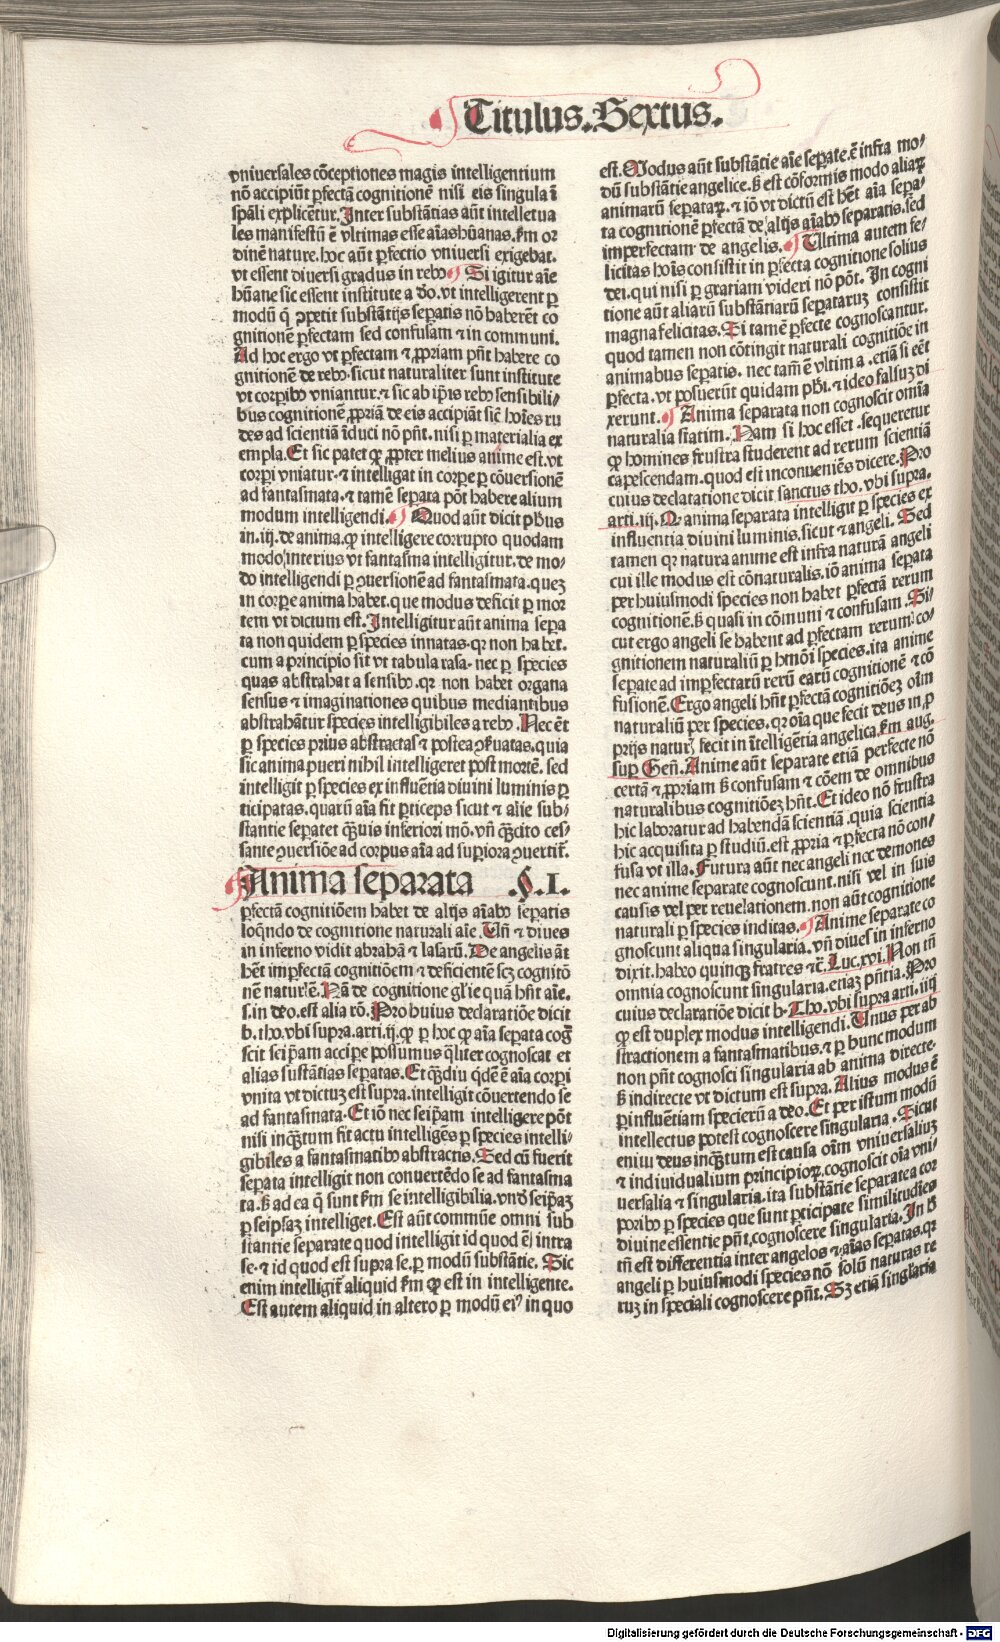 Titulus. Sextus.
vniuersales cōceptiones magis intelligentium
nō accipiūt ꝑfectā cognitionē nisi eis singula ī
spāli explicētur. Inter substātias aūt intelletua
les manifestū ē vltimas esse aīas hūanas. ẜm or
dinē nature. hoc aūt ꝑfectio vniuersi exigebat.
vt essent diuersi gradus in rebꝰ ¶ Si igitur aīe
hūane sic essent institute a dō. vt intelligerent ꝑ
modū ꝗ ꝯpetit substātijs sepatis nō haberēt co
gnitionē ꝑfectam sed confusam ⁊ in communi.
Ad hoc ergo vt ꝑfectam ⁊ ꝓpriam pn̄t habere co
gnitionē de rebꝰ. sicut naturaliter sunt institute
vt corpibꝰ vniantur. ⁊ sic ab ip̄is rebꝰ sensibili⸗
bus cognitionē ꝓpriā de eis accipiāt sic̄ hoīes ru
des ad scientiā iduci nō pn̄t. nisi ꝑ materialia ex
empla. Et sic patet ꝙ ꝓpter melius anime est. vt
corpi vniatur. ⁊ intelligat in corpe ꝑ cōuersionē
ad fantasmata. ⁊ tamē sepata pōt habere alium
modum intelligendi. ¶ Quod aūt dicit pħus
in .iij. de anima. ꝙ intelligere corrupto quodam
modo interius vt fantasma intelligitur. de mo⸗
do intelligendi ꝑ ꝯuersionē ad fantasmata. quez
in corpe anima habet. que modus deficit ꝑ mor
tem vt dictum est. Intelligitur aūt anima sepa
ta non quidem ꝑ species innatas. qr non habet.
cum a principio sit vt tabula rasa. nec ꝑ species
quas abstrahat a sensibꝰ. qr non habet organa
sensus ⁊ imaginationes quibus mediantibus
abstrahātur species intelligibiles a rebꝰ. Nec ēt
ꝑ species prius abstractas ⁊ postea ꝯẜuatas. quia
sic anima pueri nihil intelligeret post mortē. sed
intelligit ꝑ species ex influētia diuini luminis ꝑ
ticipatas. quarū aīa fit ꝑticeps sicut ⁊ alie sub⸗
stantie sepatet quis inferiori mō. vn̄ cito ces⸗
sante ꝯuersiōe ad corpus aīa ad supiora ꝯuertit̄.
Anima separata §. I.
ꝑfectā cognitiōem habet de alijs aīabꝰ sepatis
loqn̄do de cognitione naturali aīe. Vn̄ ⁊ diues
in inferno vidit abrahā ⁊ lasarū. De angelis āt
hēt imꝑfectā cognitiōem ⁊ deficientē scꝫ cognitō
nē natural'ē. Nā de cognitione gl'ie quā hn̄t aīe.
s. in deo. est alia rō. Pro huius declaratiōe dicit
b. tho. vbi supra. arti. ij. ꝙ ꝑ hoc ꝙ aīa sepata coḡ
scit seip̄am accipe possumus ql̄iter cognoscat et
alias sustātias sepatas. Et diu qdē ē aīa corpi
vnita vt dictuz est supra. intelligit cōuertendo se
ad fantasmata. Et iō nec seip̄am intelligere pōt
nisi inqtum fit actu intelligēs ꝑ species intelli⸗
gibiles a fantasmatibꝰ abstractis. Sed cū fuerit
sepata intelligit non conuertēdo se ad fantasma
ta. ẜ ad ea ꝗ sunt ẜm se intelligibilia. vnd̄ seip̄az
ꝑ seip̄saz intelliget. Est aūt commūe omni sub
stantie separate quod intelligit id quod ē intra
se. ⁊ id quod est supra se. ꝑ modū substātie. Sic
enim intelligit̄ aliquid ẜm ꝙ est in intelligente.
Est autem aliquid in altero ꝑ modū eiꝰ in quo
est. Modus aūt substātie aīe sepate. ē infra mo⸗
dū substātie angelice. ẜ est cōformis modo aliaꝝ
animarū sepataꝝ. ⁊ iō vt dictū est hēt aīa sepa⸗
ta cognitionē ꝑfectā de alijs aīabꝰ separatis. sed
imperfectam de angelis. ¶ Vltima autem fe⸗
licitas hoīs consistit in ꝑfecta cognitione solius
dei. qui nisi ꝑ gratiam videri nō pōt. In cogni
tione aūt aliarū substātiarū sepataruz consistit
magna felicitas. Si tamē ꝑfecte cognoscantur.
quod tamen non cōtingit naturali cognitiōe in
animabus sepatis. nec tam̄ ē vltima. etiā si eēt
ꝑfecta. vt posuerūt quidam pħi. ⁊ ideo falsuz di
xerunt. ¶ Anima separata non cognoscit oīa
naturalia statim. Nam si hoc esset. sequeretur
ꝙ homines frustra studerent ad rerum scientiā
capescendam. quod est inconueniēs dicere. Pro
cuius declatatione dicit sanctus tho. vbi supra.
arti. iij. ꝙ anima separata intelligit ꝑ species ex
influentia diuini luminis. sicut ⁊ angeli. Sed
tamen qr natura anime est infra naturā angeli
cui ille modus est cōnaturalis. iō anima sepata
per huiusmodi species non habet ꝑfectā rerum
cognitionē. ẜ quasi in cōmuni ⁊ confusam. Si⸗
cut ergo angeli se habent ad ꝑfectam rerum co⸗
gnitionem naturaliū ꝑ hmōi species. ita anime
sepate ad imꝑfectarū rerū earū cognitionē ⁊ cō
fusionē. Ergo angeli hn̄t ꝑfectā cognitiōez oīm
naturaliū per species. qr oīa que fecit deus in ꝓ
prijs naturꝭ fecit in ītelligētia angelica. ẜm aug.
sup Gen̄. Anime aūt separate etiā perfecte nō
certā ⁊ ꝓpriam ẜ confusam ⁊ cōem de omnibus
naturalibus cognitiōez hn̄t. Et ideo nō frustra
hic laboratur ad habendā scientiā. quia scientia
hic acquisita ꝑ studiū. est ꝓpria ⁊ ꝑfecta nō con⸗
fusa vt illa. Futura aūt nec angeli nec demones
nec anime separate cognoscunt. nisi vel in suis
causis vel per reuelationem. non aūt cognitione
naturali ꝑ species inditas. ¶ Anime separate co
gnoscunt aliqua singularia. vn̄ diues in inferno
dixit. habeo quinqꝫ fratres ⁊c̄. Luc. xvi. Non tn̄
omnia cognoscunt singularia. etiaz pn̄tia. Pro
cuius declaratiōe dicit b. Tho. vbi supra arti. iiij
ꝙ est duplex modus intelligendi. Vnus per ab
stractionem a fantasmatibus. ⁊ ꝑ hunc modum
non pn̄t cognosci singularia ab anima directe.
ẜ indirecte vt dictum est supra. Alius modus ē
ꝑ influētiam specierū a deo. Et per istum modū
intellectus potest cognoscere singularia. Sicut
enim deus inqtum est causa oīm vniuersaliuz
⁊ indiuidualium principioꝝ. cognoscit oīa vni⸗
uersalia ⁊ singularia. ita substātie separate a cor
poribꝰ ꝑ species que sunt ꝑticipate similitudies
diuine essentie pn̄t. cognoscere singularia. In ẜ
tn̄ est differentia inter angelos ⁊ aīas sepatas. qr
angeli ꝑ huiusmodi species nō solū naturas re
ruz in speciali cognoscere pn̄t. Sꝫ etiā singl'aria
Digitalisierung gefördert durch die Deutsche Forschungsgemeinschaft - DFG